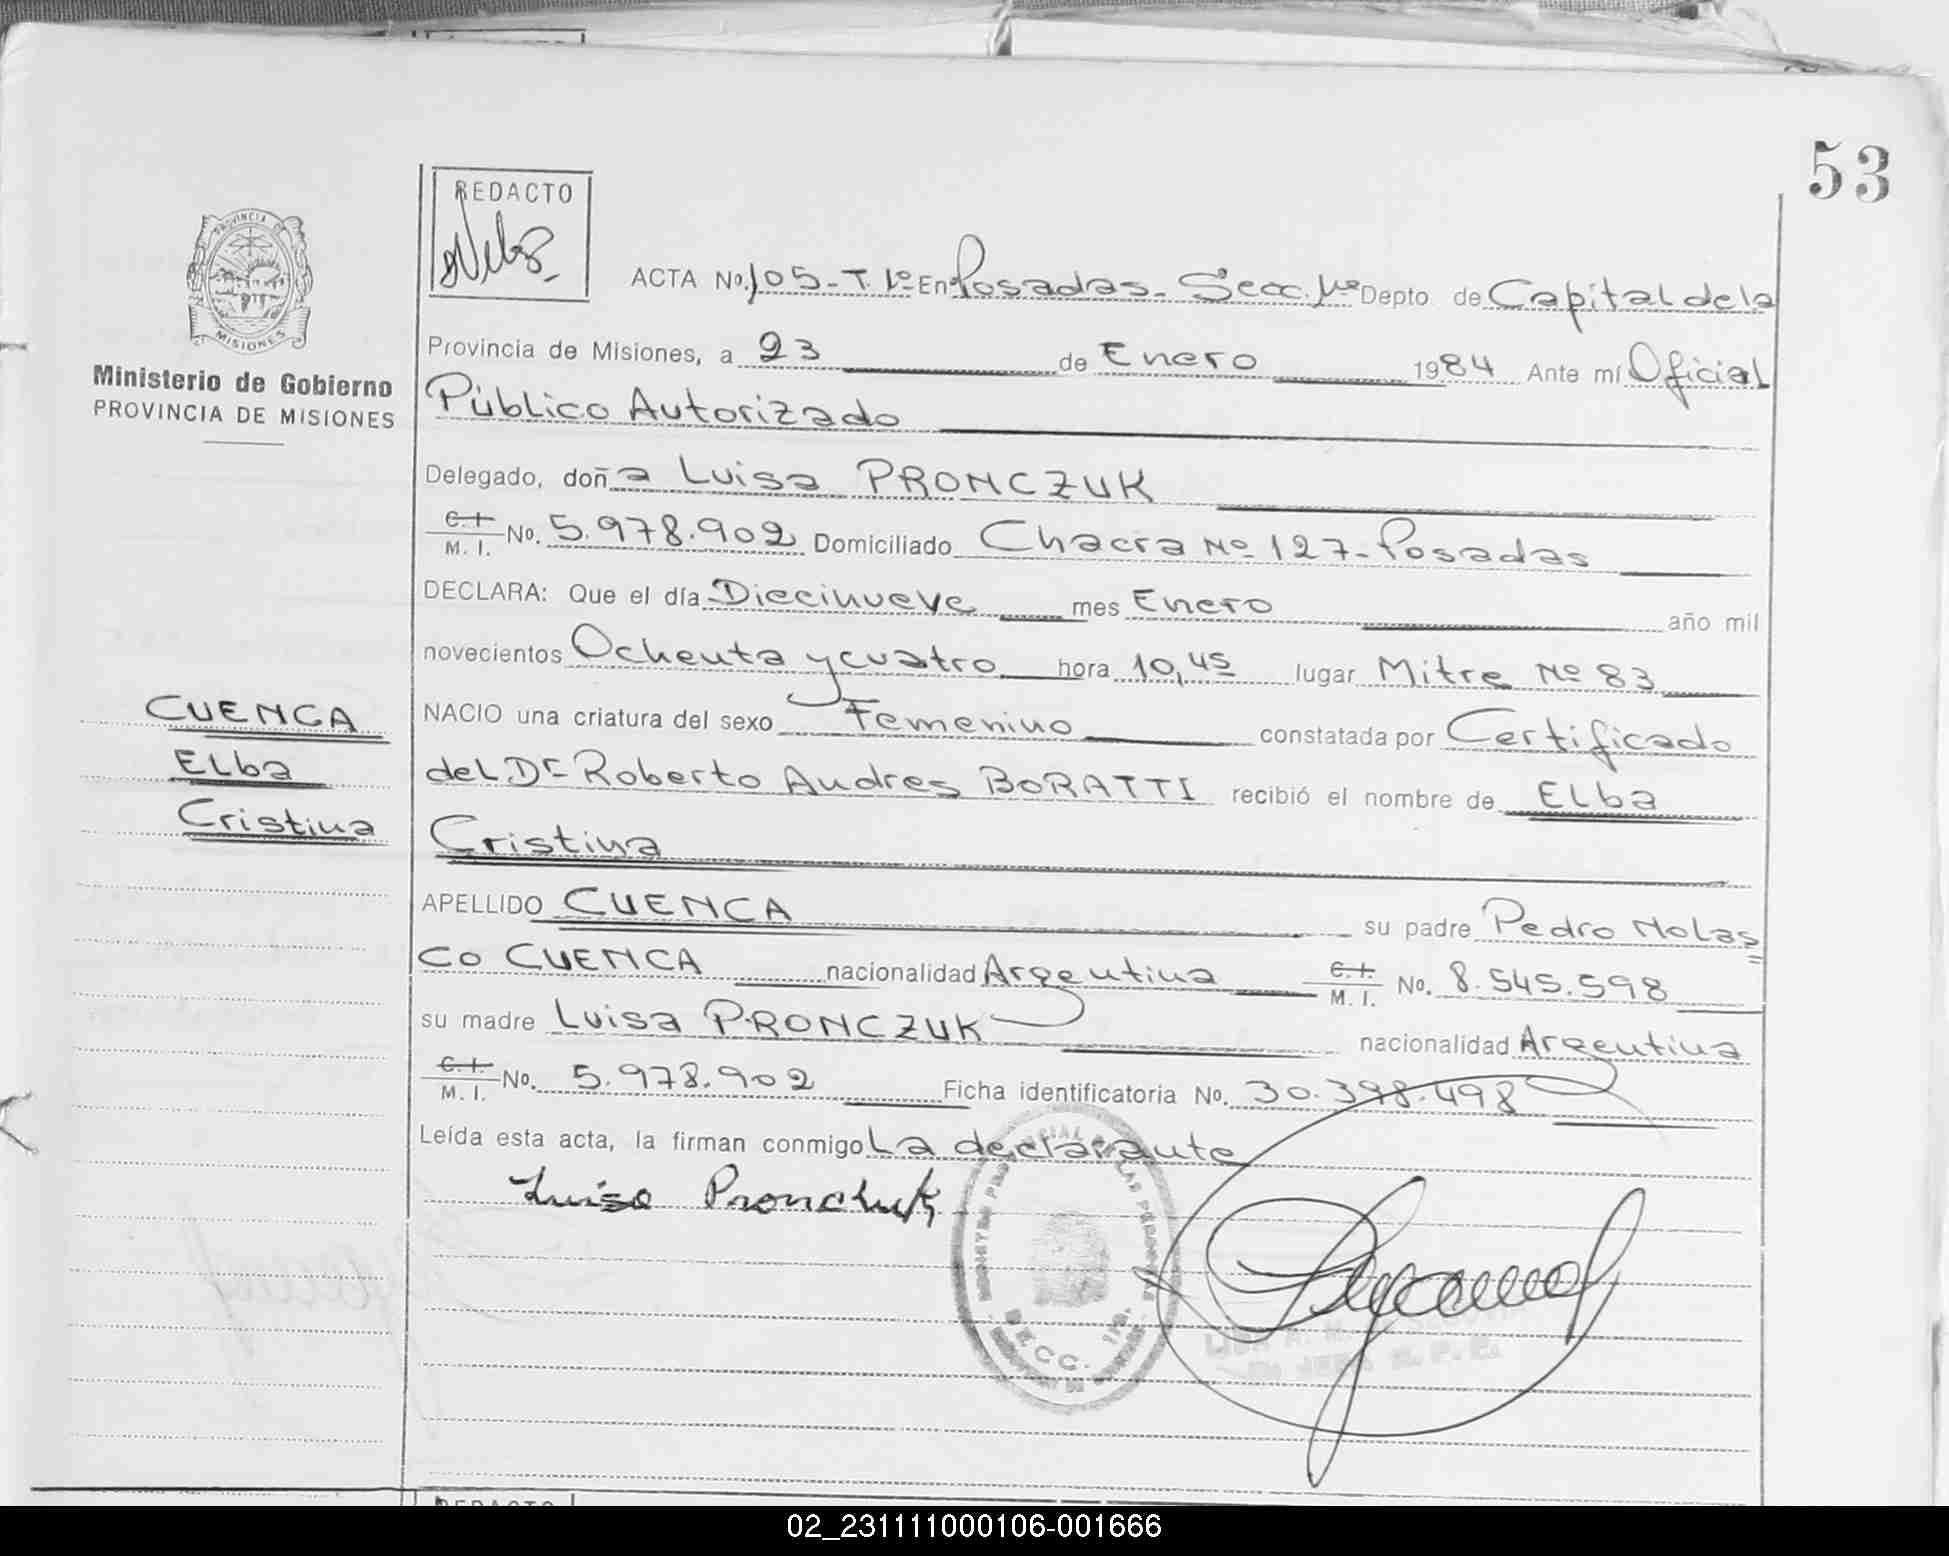 53
REDACTO
PROVINCIA DE
MISIONES
Ministerio de Gobierno
PROVINCIA DE MISIONES
ACTA No. 105-T. 1º En Posadas- Secc. 1ª Depto de Capital de la
Provincia de Misiones, a 23 de Enero 1984 Ante mí Oficial
Público Autorizado
Delegado, doña Luisa PRONCZUK
C.I. / M. I. No. 5.978.902 Domiciliado Chacra Nº 127- Posadas
DECLARA: Que el día Diecinueve mes Enero año mil
novecientos Ochenta y cuatro hora 10,45 lugar Mitre Nº 83
NACIO una criatura del sexo Femenino constatada por Certificado
del Dr Roberto Andres BORATTI recibió el nombre de Elba
Cristina
APELLIDO CUENCA su padre Pedro Nolas=
co CUENCA nacionalidad Argentina C.I. / M. I. No. 8.545.598
su madre Luisa PRONCZUK nacionalidad Argentina
C.I. / M. I. No. 5.978.902 Ficha identificatoria No. 30.398.498
Leída esta acta, la firman conmigo La declarante
Luisa Pronczuk
CUENCA
Elba
Cristina
REDACTO
02_231111000106-001666